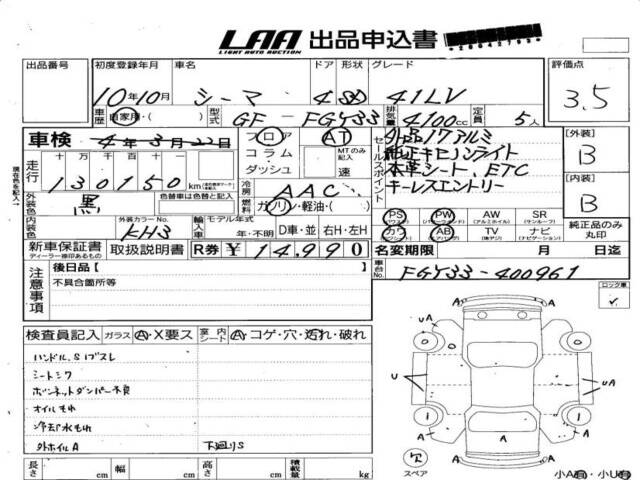 LAA 出品申込書
LIGHT AUTO AUCTION
出品番号 初度登録年月 車名 ドア 形状 グレード 評価点
10年10月 シーマ 4 SD 41LV 3.5
車歴 自家用・( ) 型式 GF-FGY33 排気量 4100cc 定員 5人
車検 4年3月22日
フロア コラム ダッシュ
AT MTのみ記入 速
セールスポイント
外品17アルミ
純正キセノンライト
本革シート、ETC
キーレスエントリー
[外装] B
[内装] B
走行 十万 万 千 百 十 一
130150km
冷房 AAC
外装色 黒 色替車は色替と記入
燃料 ガソリン・軽油・( )
内装色 外装カラーNo. KH3
輸入車 モデル年式 年・不明 D車・並 右H・左H
PS (パワステ) PW (パワーウィンドウ) AW (アルミホイル) SR (サンルーフ)
カワ AB (エアバッグ) TV (地デジ) ナビ (ナビゲーション)
純正品のみ丸印
新車保証書 ディーラー様印あるもの 取扱説明書 R券 ¥14,990
名変期限 月 日迄
車台No. FGY33-400961
注意事項
後日品[ ]
不具合箇所等
ロック車
検査員記入 ガラス A・X要ス 室内シート A・コゲ・穴・汚れ・破れ
ハンドル、Sイブスレ
シートシワ
ボンネットダンパー不良
オイルもれ
冷却水もれ
外ホイルA 下廻りS
A A
UA A
U U
A A
A
スペア
長さ cm 幅 cm 高さ cm 積載量 kg
小A有・小U有